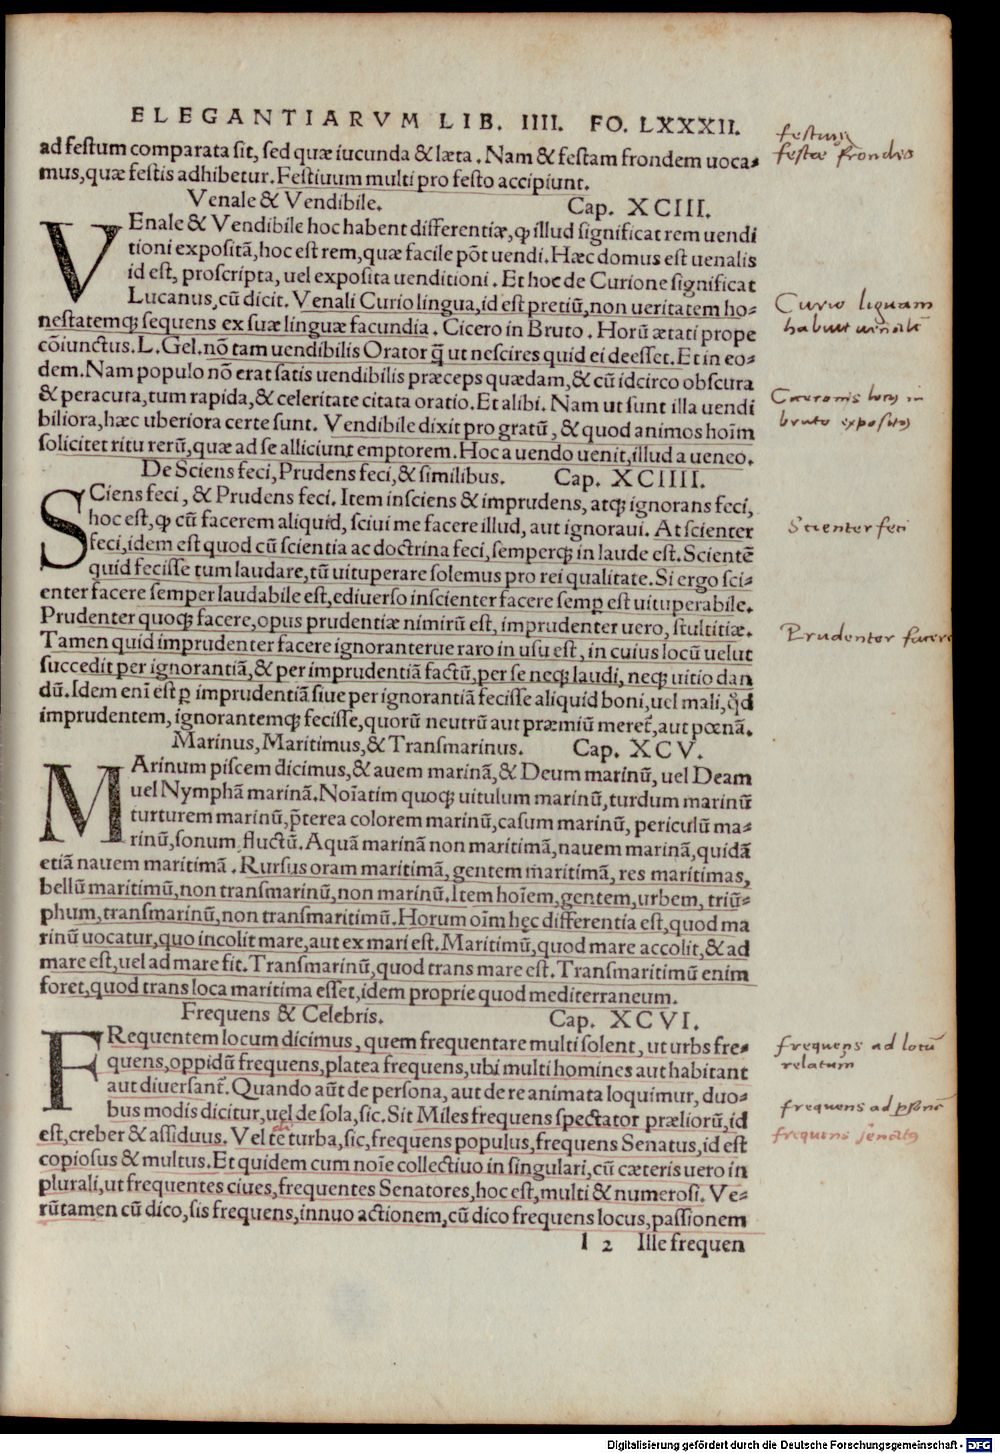 ELEGANTIARVM LIB. IIII. FO. LXXXII.
ad festum comparata sit, sed quæ iucunda & læta. Nam & festam frondem uoca-
mus, quæ festis adhibetur. Festiuum multi pro festo accipiunt.
Venale & Vendibile. Cap. XCIII.
VEnale & Vendibile hoc habent differentiæ, ꝙ illud significat rem uendi
tioni expositã, hoc est rem, quæ facile põt uendi. Hæc domus est uenalis
id est, proscripta, uel exposita uenditioni. Et hoc de Curione significat
Lucanus, cũ dicit. Venali Curio lingua, id est pretiũ, non ueritatem ho-
nestatemqꝫ sequens ex suæ linguæ facundia. Cicero in Bruto. Horũ ætati prope
cõiunctus. L. Gel. nõ tam uendibilis Orator q̃ ut nescires quid ei deesset. Et in eo-
dem. Nam populo nõ erat satis uendibilis præceps quædam, & cũ idcirco obscura
& peracuta, tum rapida, & celeritate citata oratio. Et alibi. Nam ut sunt illa uendi
biliora, hæc uberiora certe sunt. Vendibile dixit pro gratũ, & quod animos hoĩm
solicitet ritu rerũ, quæ ad se alliciunt emptorem. Hoc a uendo uenit, illud a ueneo.
De Sciens feci, Prudens feci, & similibus. Cap. XCIIII.
SCiens feci, & Prudens feci. Item insciens & imprudens, atqꝫ ignorans feci,
hoc est, ꝙ cũ facerem aliquid, sciui me facere illud, aut ignoraui. At scienter
feci, idem est quod cũ scientia ac doctrina feci, semperqꝫ in laude est. Scientẽ
quid fecisse tum laudare, tũ uituperare solemus pro rei qualitate. Si ergo sci-
enter facere semper laudabile est, ediuerso inscienter facere semꝑ est uituperabile.
Prudenter quoqꝫ facere, opus prudentiæ nimirũ est, imprudenter uero, stultitiæ.
Tamen quid imprudenter facere ignoranterue raro in usu est, in cuius locũ uelut
succedit per ignorantiã, & per imprudentiã factũ, per se neqꝫ laudi, neqꝫ uitio dan
dũ. Idem enĩ est ꝑ imprudentiã siue per ignorantiã fecisse aliquid boni, uel mali, qd̃
imprudentem, ignorantemqꝫ fecisse, quorũ neutrũ aut præmiũ meret̃, aut pœnã.
Marinus, Maritimus, & Transmarinus. Cap. XCV.
MArinum piscem dicimus, & auem marinã, & Deum marinũ, uel Deam
uel Nymphã marinã. Noĩatim quoqꝫ uitulum marinũ, turdum marinũ
turturem marinũ, p̃terea colorem marinũ, casum marinũ, periculũ ma-
rinũ, sonum fluctũ. Aquã marinã non maritimã, nauem marinã, quidã
etiã nauem maritimã. Rursus oram maritimã, gentem maritimã, res maritimas,
bellũ maritimũ, non transmarinũ, non marinũ. Item hoĩem, gentem, urbem, triũ-
phum, transmarinũ, non transmaritimũ. Horum oĩm hęc differentia est, quod ma
rinũ uocatur, quo incolit mare, aut ex mari est. Maritimũ, quod mare accolit, & ad
mare est, uel ad mare fit. Transmarinũ, quod trans mare est. Transmaritimũ enim
foret, quod trans loca maritima esset, idem proprie quod mediterraneum.
Frequens & Celebris. Cap. XCVI.
FRequentem locum dicimus, quem frequentare multi solent, ut urbs fre-
quens, oppidũ frequens, platea frequens, ubi multi homines aut habitant
aut diuersant̃. Quando aũt de persona, aut de re animata loquimur, duo-
bus modis dicitur, uel de sola, sic. Sit Miles frequens spectator præliorũ, id
est, creber & assiduus. Vel te turba, sic, frequens populus, frequens Senatus, id est
copiosus & multus. Et quidem cum noĩe collectiuo in singulari, cũ cæteris uero in
plurali, ut frequentes ciues, frequentes Senatores, hoc est, multi & numerosi. Ve-
rũtamen cũ dico, sis frequens, innuo actionem, cũ dico frequens locus, passionem
l 2 Ille frequen
festum
festæ frondis
Curio liguam
habuit uenalẽ
Ciceronis locus in
bruto expositus
Scienter feci
Prudenter facere
frequens ad locũ
relatum
frequens ad ꝑsonã
frequens senatus
Digitalisierung gefördert durch die Deutsche Forschungsgemeinschaft - DFG